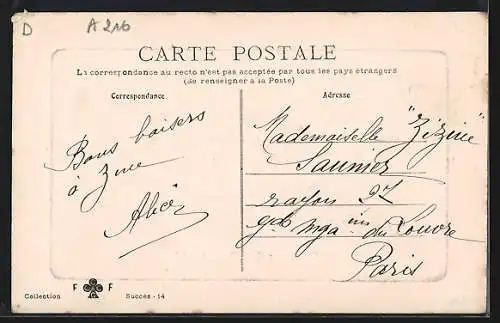 D
A 216
CARTE POSTALE
La correspondance au recto n'est pas acceptée par tous les pays étrangers
(de renseigner à la Poste)
Correspondance
Bons baisers
à Zine
Alice
Adresse
Mademoiselle "Zizine"
Saunier
rayon 27
gds mgains du Louvre
Paris
F F
Collection
Succès - 14